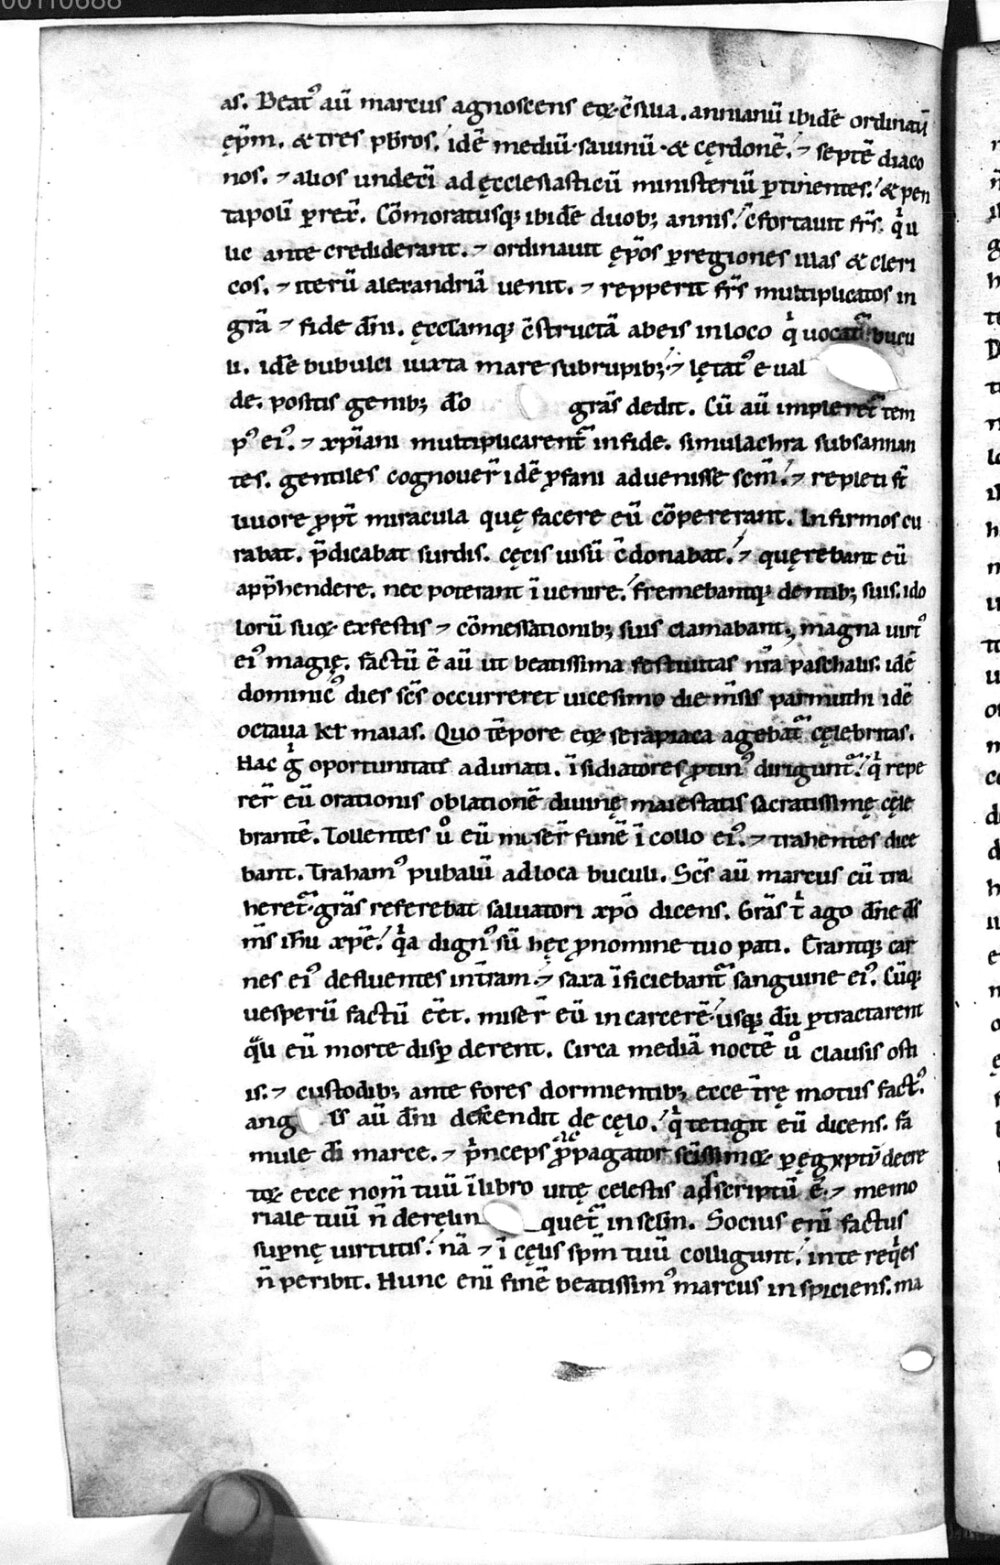 00110688
as. Beat᾽ aū marcus agnoscens eoꝝ c̄silia. annianū ibidē ordinaū
ęp̄m. & tres p̄bros. idē mediū. sauinū. & cęrdonē. ⁊ septē diaco
nos. ⁊ alios undeci ad ęcclesiasticū ministeriū ꝑtinentes. & pen
tapolī ꝑrex̄. Cōmoratusqꝫ ibidē duobꝫ annis. c̄fortauit fr̄s. q̇ il
lic ante crediderant. ⁊ ordinauit ęp̄os ꝑ regiones illas & cleri
cos. ⁊ iterū alexandriā uenit. ⁊ repperit fr̄s multiplicatos in
gr̄a ⁊ fide dn̄i. ęcclamqꝫ c̄structā ab eis in loco q̇ uocat᷑ bucu
li. idē bubulci iuxta mare sub rupibꝫ. ⁊ lętat᾽ e ual
de. positis genibꝫ dō grās dedit. Cū aū impleret᷑ tem
p᾽ ei᾽. ⁊ xp̄iani multiplicarent᷑ in fide. simulachra subsannan
tes. gentiles cognouer̄ idē ꝓfani aduenisse scm̄. ⁊ repleti st̄
liuore ꝓpt̄ miracula quę facere eū cōpererant. Infirmos cu
rabat. p̄dicabat surdis. cęcis uisū c̄donabat. ⁊ quęrebant eū
app̄hendere. nec poterant īuenire. fremebantqꝫ dentibꝫ suis. ido
lorū suoꝝ ex festis ⁊ cōmessationibꝫ suis clamabant, magna uirt᾽
ei᾽ magię. factū ē aū ut beatissima festiuitas nr̄a paschalis. idē
dominic᾽ dies sc̄s occurreret uicesimo die m̄sis parmuthi idē
octaua kł maias. Quo tēpore eoꝝ serapiaca agebat᷑ cęlebritas.
Hac g̊ oportunitatis adunati. īsidiatores ꝓtin᾽ dirigunt᷑. q̇ repe
rer̄ eū orationis oblationē diuinę maiestatis sacratissimę cęle
brantē. Tollentes ů eū miser̄ funē ī collo ei᾽. ⁊ trahentes dice
bant. Traham᾽ pubalū ad loca buculi. Sc̄s aū marcus cū tra
heret᷑. grās referebat saluatori xp̄o dicens. Grās t̄ ago dn̄e ds̄
m̄s ih̄u xp̄e. q̇a dign᾽ sū hęc ꝓ nomine tuo pati. Erantqꝫ car
nes ei᾽ defluentes in t̄ram. ⁊ saxa īficiebant᷑ sanguine ei᾽. Cūqꝫ
uesperū factū eēt. miser̄ eū in carcerē. usqꝫ dū ꝑtractarent
q̄ eū morte disꝑderent. Circa mediā noctē ů clausis osti
is. ⁊ custodibꝫ ante fores dormientibꝫ ecce t̄rę motus fact᾽.
ang ls aū dn̄i descendit de cęlo. q̇ tetigit eū dicens. fā
mule dī marce. ⁊ p̄nceps ꝓpagator scīssimoꝝ ꝑ ęgyptū decre
toꝝ ecce nom̄ tuū ī libro uitę cęlestis adscriptū ē. ⁊ memo
riale tuū n̄ derelin quet᷑ in sclm̄. Socius enī factus
suꝑnę uirtutis. nā ⁊ ī cęlis sp̄m tuū colligunt. in te req̇es
n̄ peribit. Hunc enī finē beatissim᾽ marcus inspiciens. ma